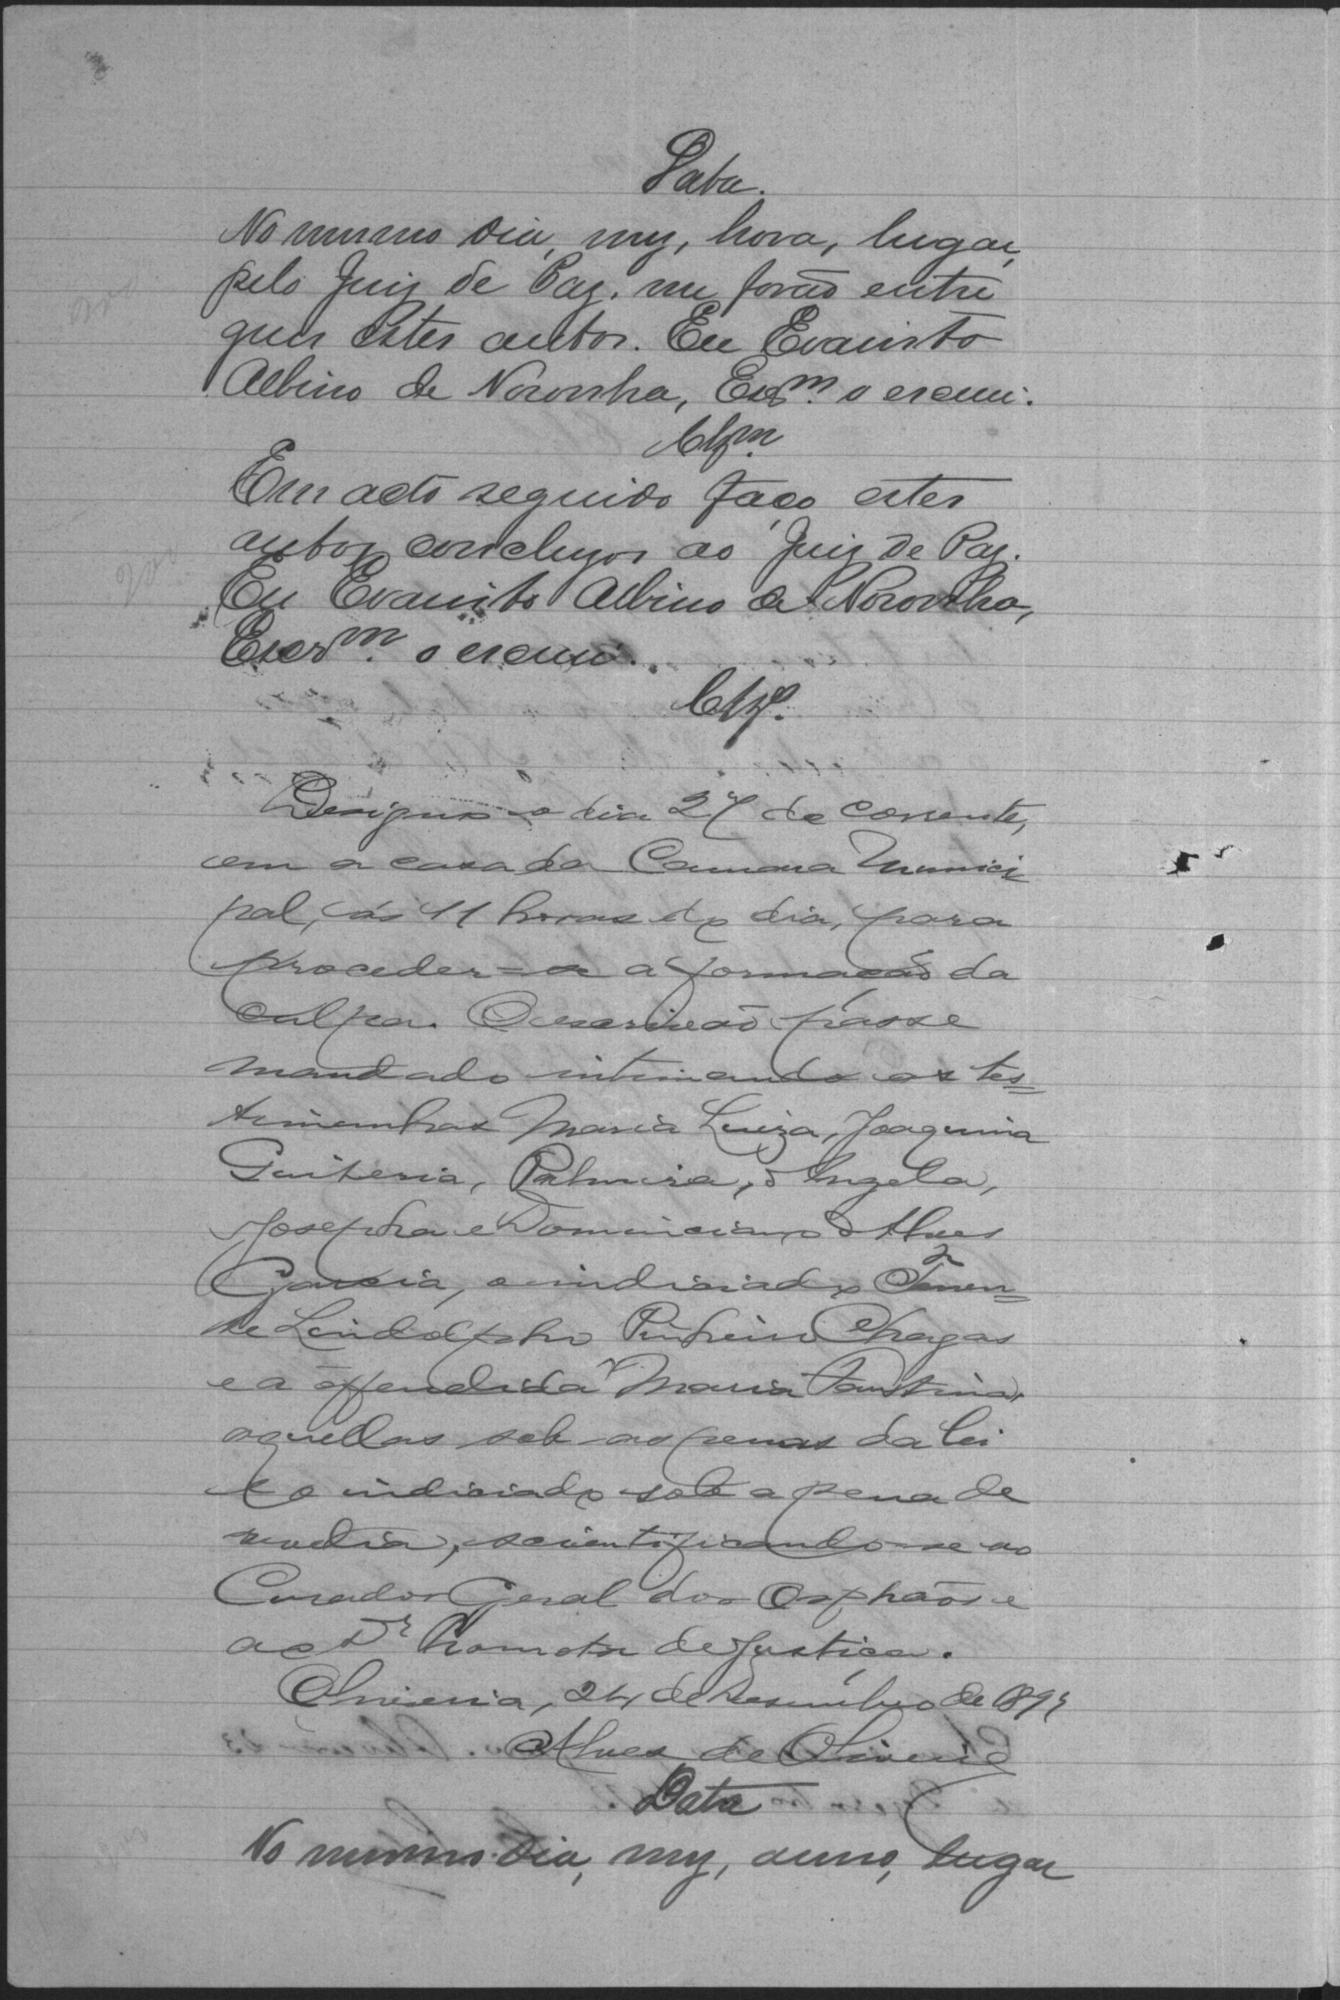 Data.
No mesmo dia, mez, hora, lugar,
pelo Juiz de Paz. me forão entre
gues estes autos. Eu Evaristo
Albino de Noronha, Escr.m o escrevi.
Clsm.
Em acto seguido faço estes
autos conclusos ao Juiz de Paz.
Eu Evaristo Albino de Noronha,
Escrm. o escrevi.
Clsº.
Designo o dia 27 do corrente,
em a casa da Camara Munici
pal, ás 11 horas do dia, para
proceder-se á formação da
culpa. O escrivão passe
mandado intimando as tes=
temunhas Maria Luiza, Joaquina
Quiteria, Palmira, Angela,
Josepha e Dominciano Alves
Garcia, o indiciado Tenen=
te Lindolpho Pinheiro Chagas
e a offendida Maria Faustina,
aquellas sob as penas da lei
e o indiciado sob a pena de
revelia, scientificando-se ao
Curador Geral dos Orphãos e
ao Dr Promotor de Justiça.
Oliveira, 24 de Desembro de 189
Alves de Oliveira
Data
No mesmo dia, mez, anno, lugar